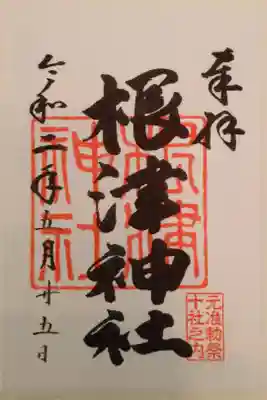 奉拝
根津神社
根津神社
元准勅祭
十社之内
令和二年五月廿五日